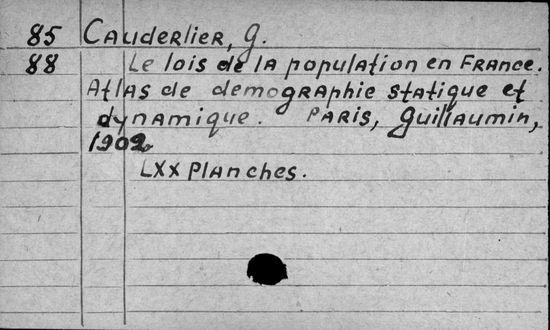 85 Cauderlier, G.
88 Le lois de la population en France.
Atlas de demographie statique et
dynamique. Paris, Guillaumin,
1902
LXX Planches.